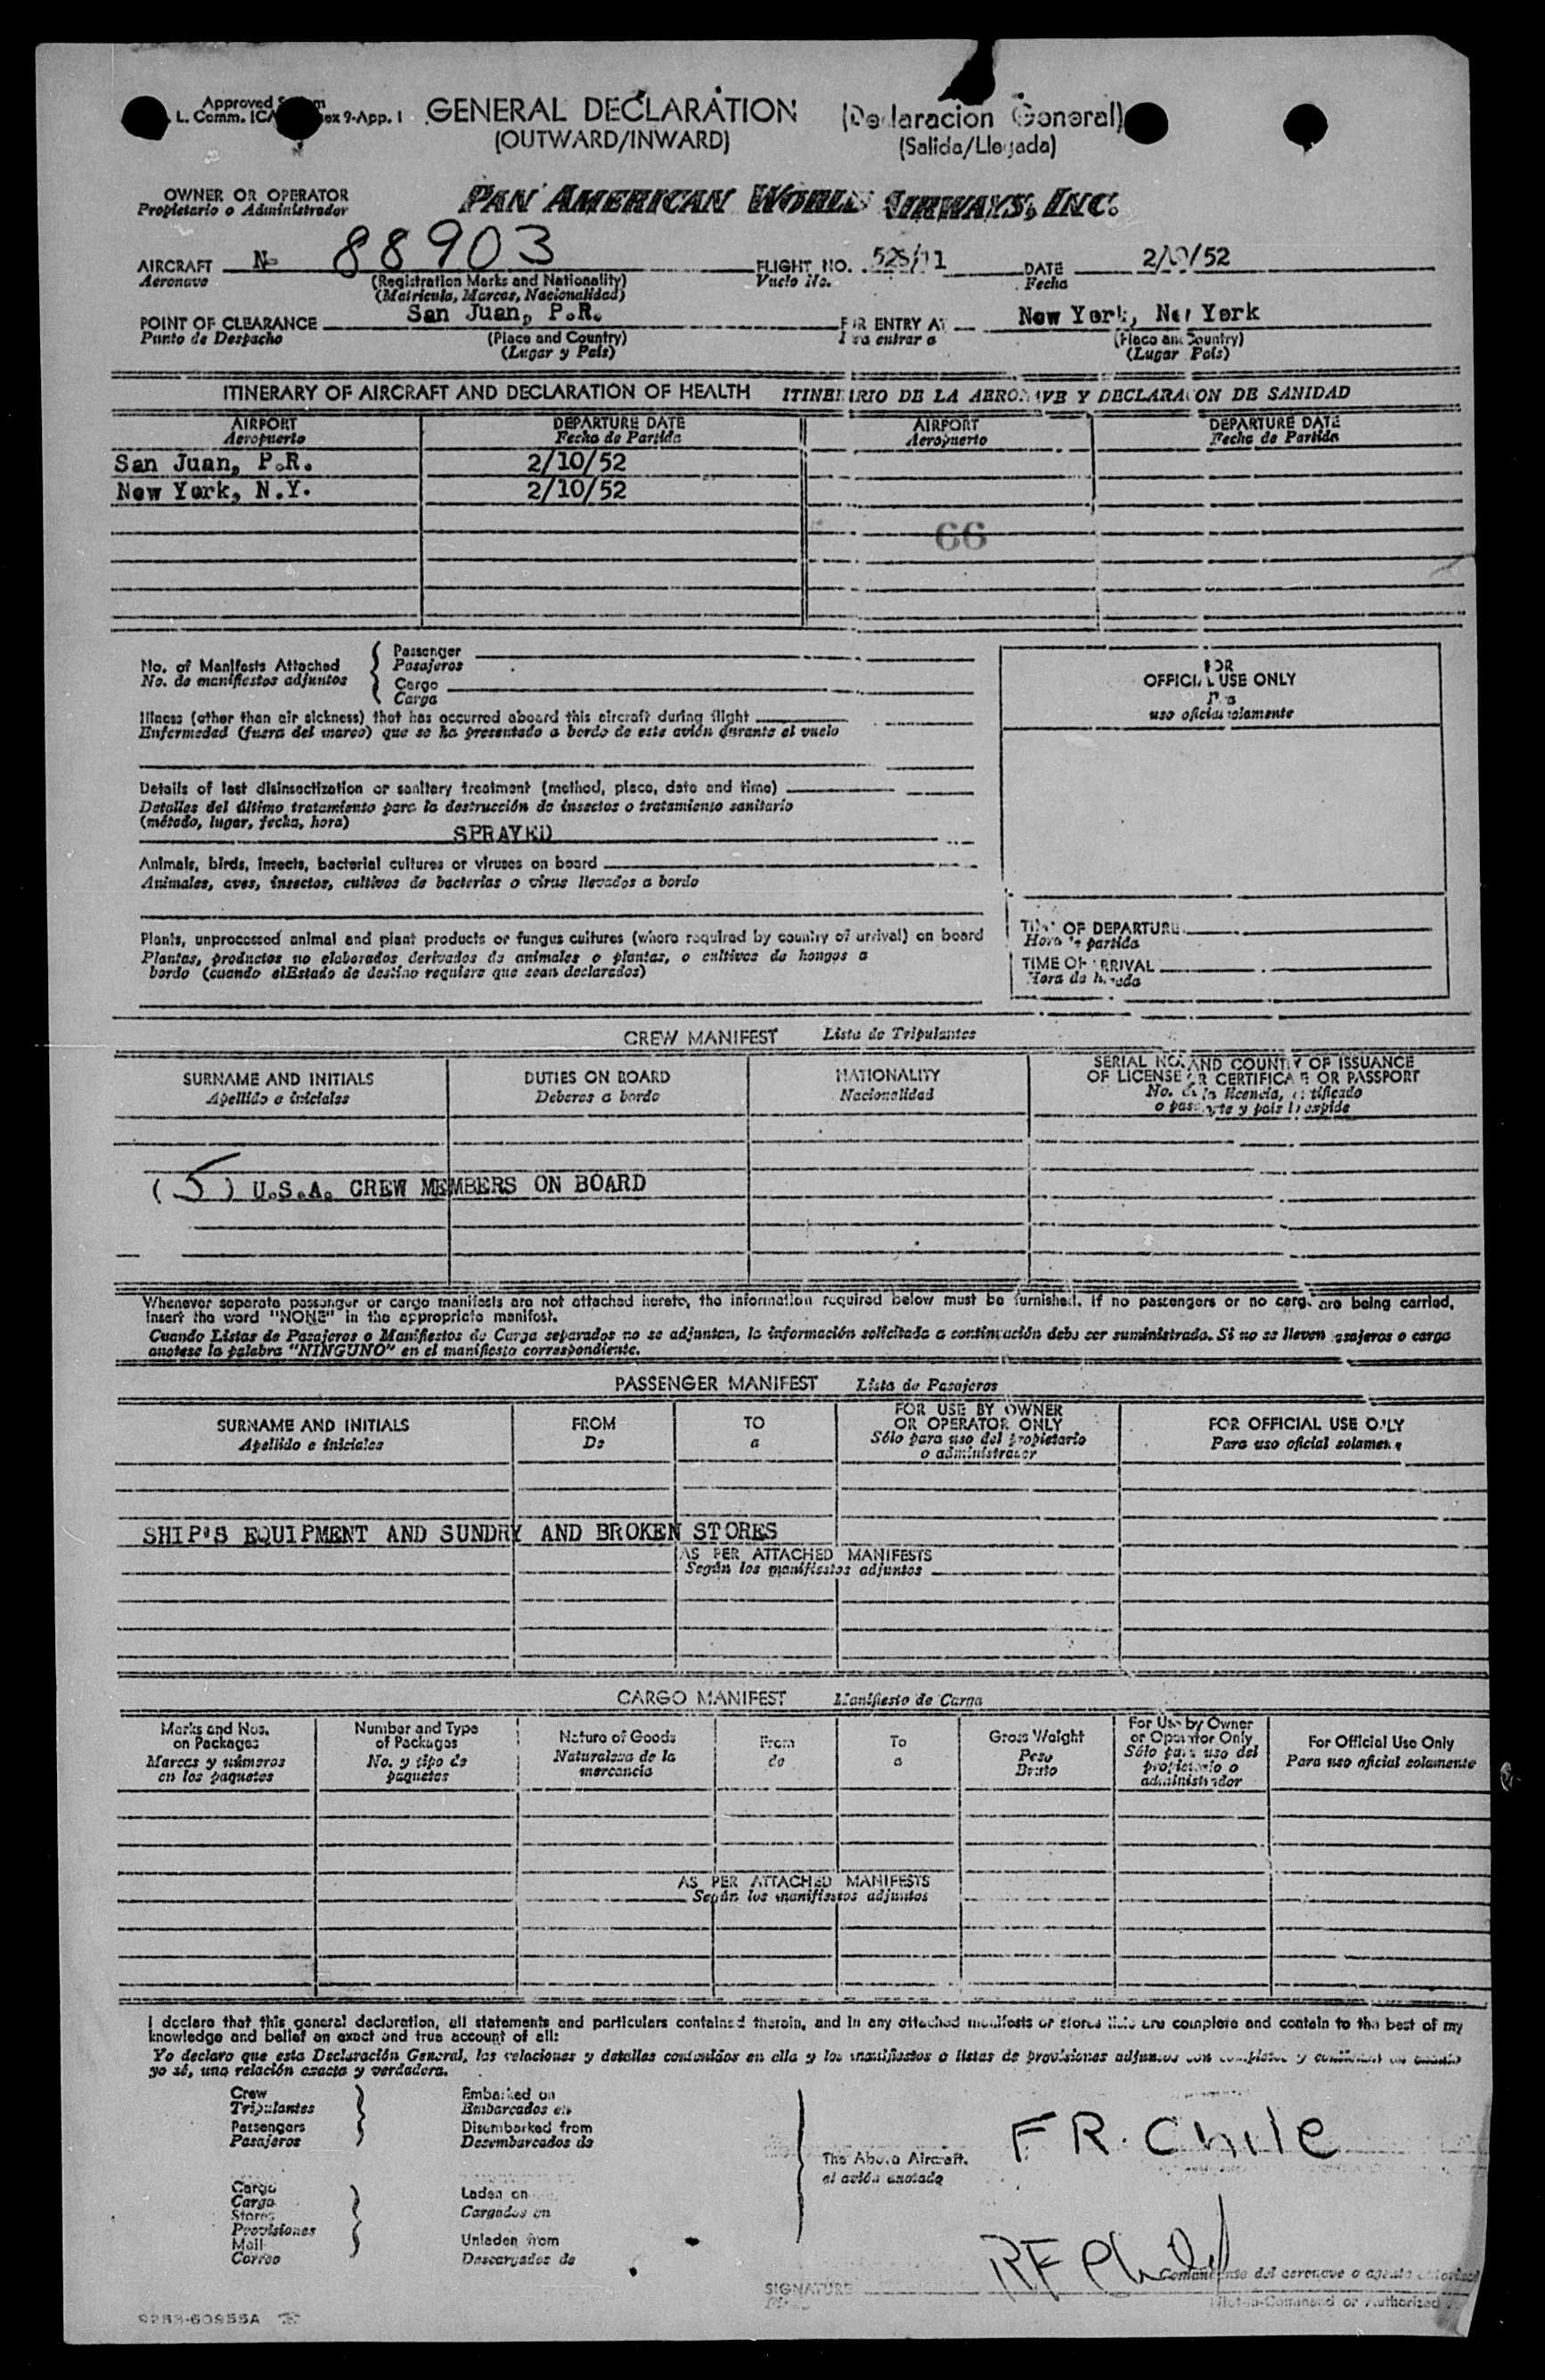 Approved
L. Comm. ICA ex 9-App. 1
GENERAL DECLARATION (Declaracion General)
(OUTWARD/INWARD) (Salida/Llegada)
OWNER OR OPERATOR PAN AMERICAN WORLD AIRWAYS, INC.
Propietario o Administrador
AIRCRAFT N- 88903 FLIGHT NO. DATE 2/10/52
Aeronave (Registration Marks and Nationality) Vuelo No. Fecha
(Matricula, Marcas, Nacionalidad)
POINT OF CLEARANCE San Juan, P.R. FOR ENTRY AT New York, New York
Punto de Despacho (Place and Country) Para entrar a (Place and Country)
(Lugar y Pais) (Lugar Pais)
ITINERARY OF AIRCRAFT AND DECLARATION OF HEALTH ITINERARIO DE LA AERONAVE Y DECLARACION DE SANIDAD
AIRPORT DEPARTURE DATE AIRPORT DEPARTURE DATE
Aeropuerto Fecha de Partida Aeropuerto Fecha de Partida
San Juan, P.R. 2/10/52
New York, N.Y. 2/10/52
66
No. of Manifests Attached
No. de manifiestos adjuntos
Passenger
Pasajeros
Cargo
Carga
FOR
OFFICIAL USE ONLY
Para
uso oficial solamente
Illness (other than air sickness) that has occurred aboard this aircraft during flight
Enfermedad (fuera del mareo) que se ha presentado a bordo de este avión durante el vuelo
Details of last disinsectization or sanitary treatment (method, place, date and time)
Detalles del último tratamiento para la destrucción de insectos o tratamiento sanitario
(método, lugar, fecha, hora)
SPRAYED
Animals, birds, insects, bacterial cultures or viruses on board
Animales, aves, insectos, cultivos de bacterias o virus llevados a bordo
Plants, unprocessed animal and plant products or fungus cultures (where required by country of arrival) on board
Plantas, productos no elaborados derivados de animales o plantas, o cultivos de hongos a
bordo (cuando elEstado de destino requiere que sean declarados)
TIME OF DEPARTURE
Hora de partida
TIME OF ARRIVAL
Hora de llegada
CREW MANIFEST Lista de Tripulantes
SURNAME AND INITIALS
Apellido e iniciales
DUTIES ON BOARD
Deberes a bordo
NATIONALITY
Nacionalidad
SERIAL NO. AND COUNTRY OF ISSUANCE
OF LICENSE OR CERTIFICATE OR PASSPORT
No. de la licencia, certificado
o pasaporte y pais expide
(5) U.S.A. CREW MEMBERS ON BOARD
Whenever separate passenger or cargo manifests are not attached hereto, the information required below must be furnished. If no passengers or no cargo are being carried,
insert the word "NONE" in the appropriate manifest.
Cuando Listas de Pasajeros o Manifiestos de Carga separados no se adjuntan, la información solicitada a continuación debe ser suministrada. Si no se lleven pasajeros o carga
anotese la palabra "NINGUNO" en el manifiesto correspondiente.
PASSENGER MANIFEST Lista de Pasajeros
SURNAME AND INITIALS
Apellido e iniciales
FROM
De
TO
a
FOR USE BY OWNER
OR OPERATOR ONLY
Sólo para uso del propietario
o administrador
FOR OFFICIAL USE ONLY
Para uso oficial solamente
SHIP'S EQUIPMENT AND SUNDRY AND BROKEN STORES
AS PER ATTACHED MANIFESTS
Según los manifiestos adjuntos
CARGO MANIFEST Manifiesto de Carga
Marks and Nos.
on Packages
Marcas y números
en los paquetes
Number and Type
of Packages
No. y tipo de
paquetes
Nature of Goods
Naturaleza de la
mercancia
From
de
To
a
Gross Weight
Peso
Bruto
For Use by Owner
or Operator Only
Sólo para uso del
propietario o
administrador
For Official Use Only
Para uso oficial solamente
AS PER ATTACHED MANIFESTS
Según los manifiestos adjuntos
I declare that this general declaration, all statements and particulars contained therein, and in any attached manifests or stores lists are complete and contain to the best of my
knowledge and belief an exact and true account of all:
Yo declaro que esta Declaración General, las relaciones y detalles contenidos en ella y los manifiestos o listas de provisiones adjuntos son completos y contienen en cuanto
yo sé, una relación exacta y verdadera.
Crew
Tripulantes
Passengers
Pasajeros
Embarked on
Embarcados en
Disembarked from
Desembarcados de
The Above Aircraft.
el avión anotado
F R. Chile
Cargo
Carga
Stores
Provisiones
Mail
Correo
Laden on
Cargados en
Unladen from
Descargados de
SIGNATURE
del aeronave o agente
Pilot-in-Command or Authorized
9253-60955A